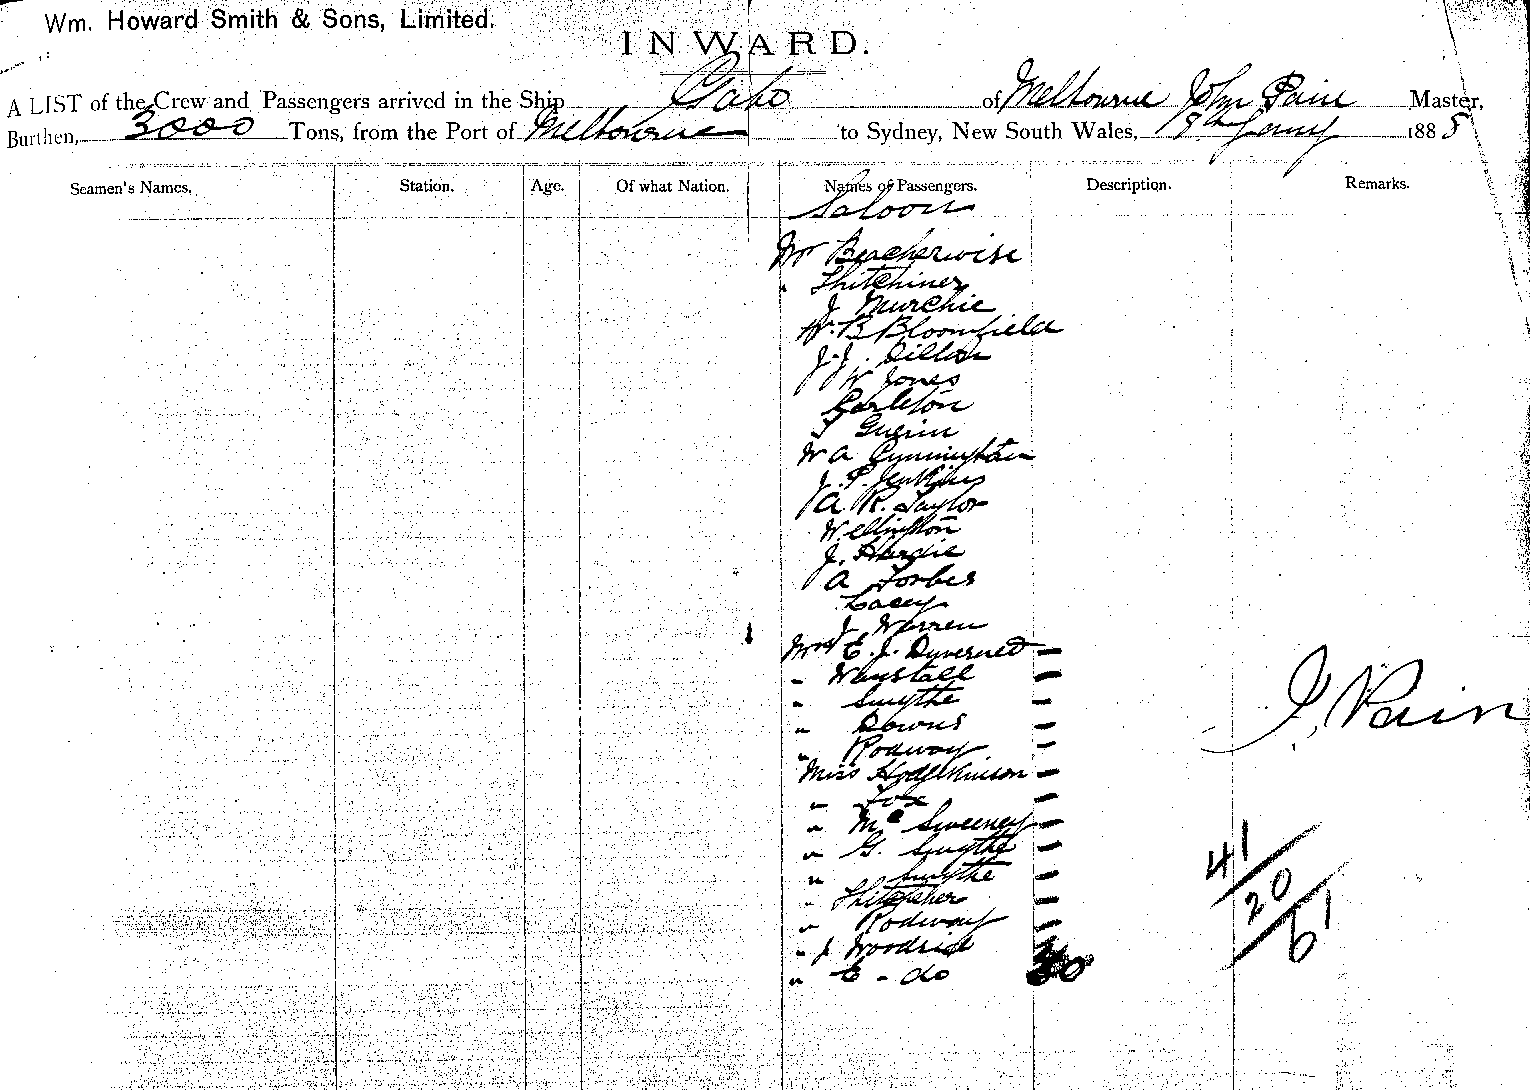 Wm. Howard Smith & Sons, Limited.
INWARD.
A LIST of the Crew and Passengers arrived in the Ship Gabo of Melbourne John Pain Master,
Burthen, 3000 Tons, from the Port of Melbourne to Sydney, New South Wales, 8th Jany 1888
Seamen's Names. Station. Age. Of what Nation. Names of Passengers. Description. Remarks.
Saloon
Mr Beacherwise
" 
J Murchie
W. B Bloomfield
J. J. Dillon
W Jones
Carleton
Guerin
W A Cunnington
J. P. Jenkins
A R. Taylor
Wellington
J. Hardie
A Forbes
Lacey
J Warren
Mrs E. J. Duvernet -
" Wanstall -
" Smythe -
" Downs -
" Rodway -
Miss Hodgkinson -
" Fox -
" Mc Sweeney -
" G. Smythe -
" Smythe -
" -
" Rodway -
" J
" E - do 30
J. Pain
41/
20/
61